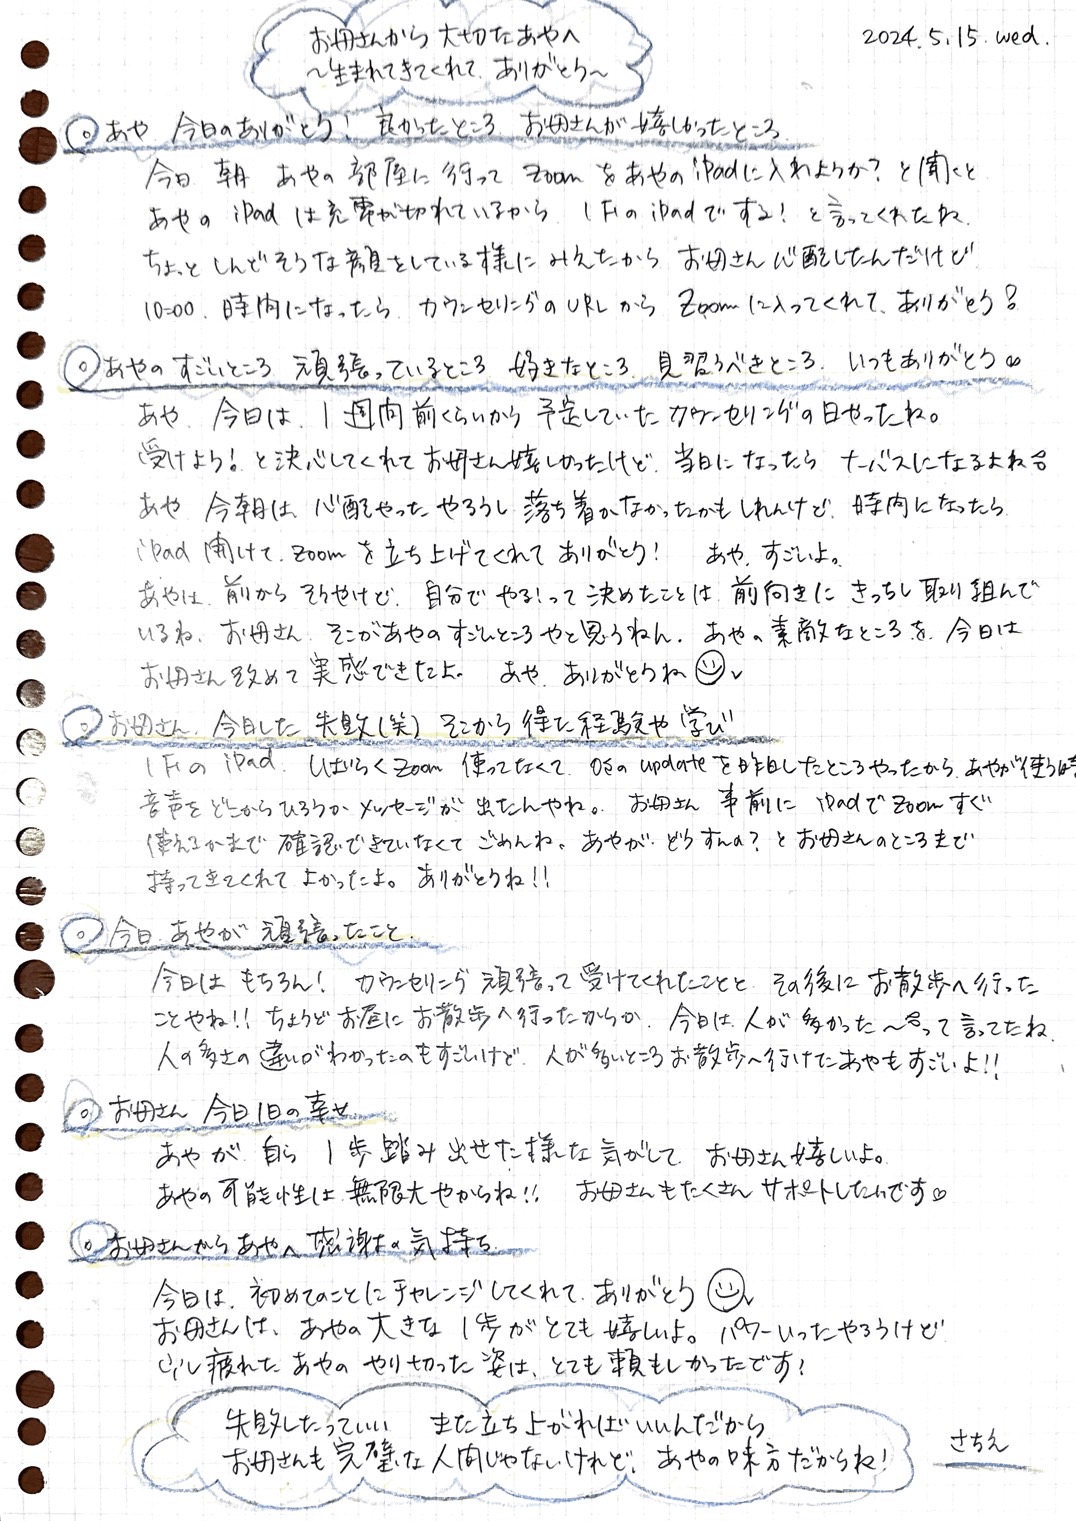 お母さんから 大切なあやへ
～生まれてきてくれて、ありがとう～
2024.5.15.wed.
◎あや 今日のありがとう! 良かったところ お母さんが嬉しかったところ
今日 朝 あやの部屋に行って Zoomをあやの iPadに入れようか?と聞くと
あやの iPad は充電が切れているから 1Fの iPadでする! と言ってくれたね
ちょっと しんどそうな顔をしている様に みえたから お母さん心配したんだけど
10:00 時間になったら カウンセリングのURLから Zoomに入ってくれて、ありがとう!
◎あやの すごいところ 頑張っているところ 好きなところ 見習うべきところ いつもありがとう♡
あや、今日は、1週間前くらいから 予定していた カウンセリングの日やったね。
受けよう! と決心してくれて お母さん嬉しかったけど、当日になったら ナーバスになるよね
あや 今朝は 心配やったやろうし 落ち着かなかったかもしれんけど、時間になったら
iPad 開けて、zoomを立ち上げてくれて ありがとう! あや、すごいよ。
あやは、前から そうやけど、自分で やる!って 決めたことは 前向きに きっちし 取り組んで
いるね、お母さん そこがあやのすごいところやと思うねん、あやの素敵なところを、今日は
お母さん改めて 実感できたよ。 あや、ありがとうね
◎お母さん、今日した 失敗(笑) そこから 得た経験や学び
1Fの iPad、しばらくZoom 使ってなくて、OSの updateを昨日したところやったから、あやが使う時
音声をどこからひろうか メッセージが出たんやね。 お母さん 事前に iPadで Zoomすぐ
使えるかまで 確認できていなくて ごめんね。あやが どうすんの? とお母さんのところまで
持ってきてくれて よかったよ。 ありがとうね!!
◎今日 あやが 頑張ったこと
今日は もちろん! カウンセリング 頑張って受けてくれたことと その後に お散歩へ行った
ことやね!! ちょうどお昼に お散歩へ行ったからか、今日は、人が多かった〜って言ってたね
人の多さの違いがわかったのもすごいけど、人が多いところお散歩へ行けたあやもすごいよ!!
◎お母さん 今日1日の幸せ
あやが 自ら 1歩 踏み出せた様な気がして お母さん嬉しいよ。
あやの可能性は 無限大やからね!! お母さんもたくさん サポートしたいです♡
◎お母さんからあやへ 感謝の気持ち
今日は、初めてのことにチャレンジしてくれて、ありがとう
お母さんは、あやの大きな 1歩がとても嬉しいよ。パワーいったやろうけど
少し疲れた あやの やり切った 姿は、とても頼もしかったです!
失敗したっていい また立ち上がればいいんだから
お母さんも 完璧な人間じゃないけれど、あやの味方だからね!
さちえ